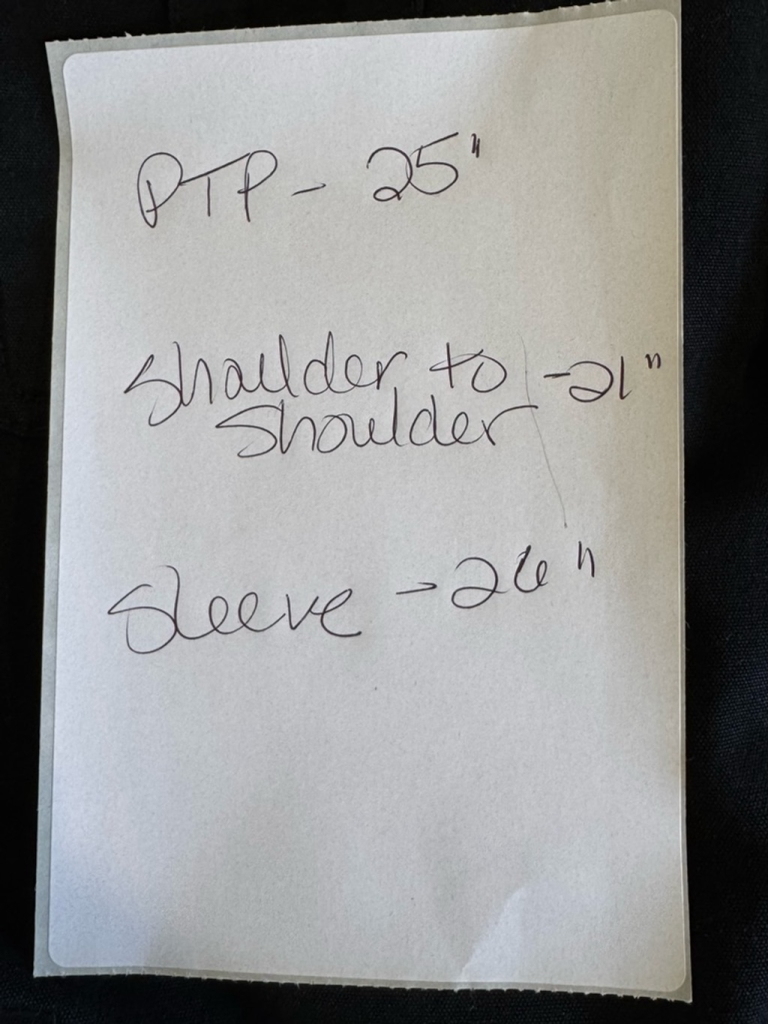 PTP - 25"
Shoulder to - 21"
Shoulder
Sleeve - 26"